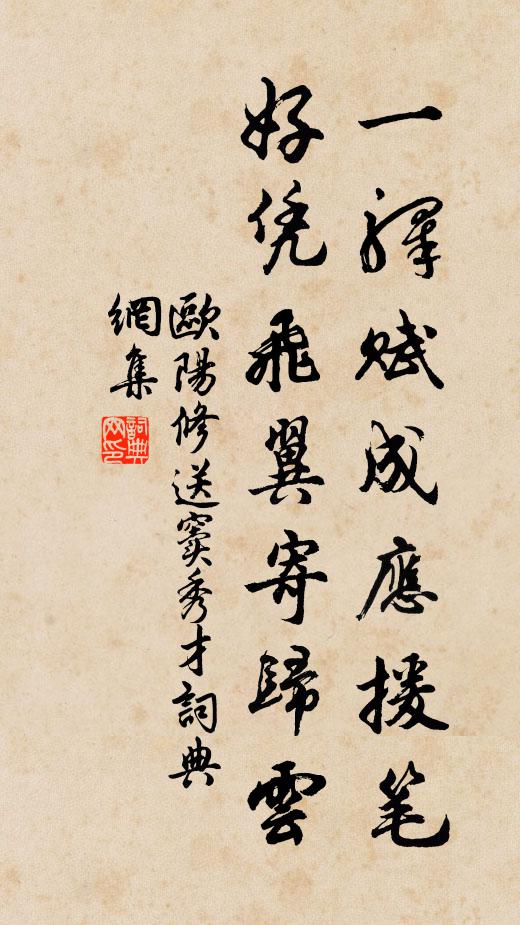 一驛賦成應援笔
好凭飛翼寄歸雲
歐陽修送窦秀才詞典
網集
詞典
网印